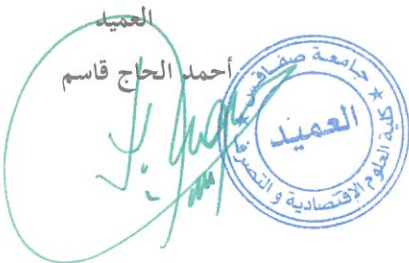 العميد
أحمد الحاج قاسم
جامعة صفاقس
العميد
كلية العلوم الإقتصادية و التصرف